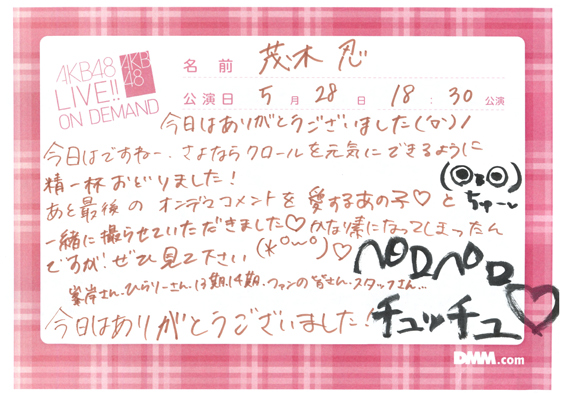 AKB48
LIVE!!
ON DEMAND
AKB
48
名前 茂木 忍
公演日 5月28日 18:30公演
今日はありがとうございました('▽')ノ
今日はですねー、さよならクロールを元気にできるように
精一杯おどりました!
あと最後のオンデコメントを愛するあの子♡と
一緒に撮らせていただきました♡かな〜り素になってしまったん
ですがぜひ見て下さい(*^o^*)♡
ちゅ〜
ペロペロ
チュッチュ♡
峯岸さん、ひらりーさん、13期、14期、ファンの皆さん、スタッフさん…
今日はありがとうございました!
DMM.com